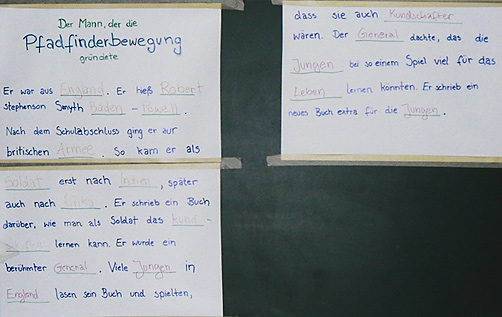 Der Mann, der die
Pfadfinderbewegung
gründete
Er war aus England. Er hieß Robert
Stephenson Smyth Baden - Powell.
Nach dem Schulabschluss ging er zur
britischen Armee. So kam er als
Soldat erst nach Indien, später
auch nach Afrika. Er schrieb ein Buch
darüber, wie man als Soldat das Kund -
lernen kann. Er wurde ein
berühmter General. Viele Jungen in
England lasen sein Buch und spielten,
dass sie auch Kundschafter
wären. Der General dachte, das die
Jungen bei so einem Spiel viel für das
Leben lernen könnten. Er schrieb ein
neues Buch extra für die Jungen.